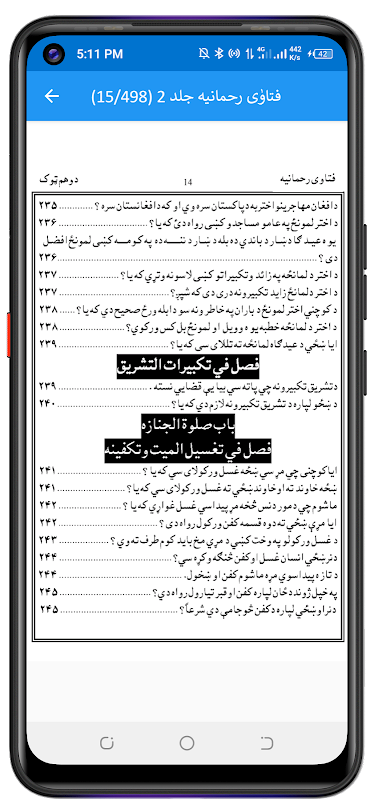 5:11 PM
4G
442 K/s
42
فتاوٰی رحمانیه جلد 2 (15/498)
فتاوی رحمانیه 14 دوهم ټوک
دافغان مهاجرینو اختر به د پاکستان سره وي او که دافغانستان سره ؟ ۲۳۵
د اختر لمونځ په عامو مساجدو کښی رواه دئ که یا؟ ۲۳۶
یوه عیدګاه د ښار د باندي ده بله د ښار د ننه ده په کومه کښی لمونځ افضل
دی ؟ ۲۳۶
د اختر د لمانځه په زائد و تکبیراتو کښی لاسونه وتړي که یا؟ ۲۳۷
د اختر لمانځ زاید تکبیرونه دری دی که شپږ؟ ۲۳۷
د کوچني اختر لمونځ د باران په خاطر ونه سو دابله ورځ صحیح دي که یا؟ ۲۳۸
د اختر د لمانځه خطبه یوه وویل او لمونځ بل کس ورکوي؟ ۲۳۸
ایا ښځي د عیدګاه لمانځه ته تللای سی که یا؟ ۲۳۹
فصل في تکبیرات التشریق
د تشریق تکبیرونه چي پاته سي بیا یې قضایي نسته . ۲۳۹
د ښځو لپاره د تشریق تکبیرونه لازم دي که یا؟ ۲۴۰
باب صلوة الجنازه
فصل في تغسیل المیت وتکفینه
ایا کوچنی چي مړ سي ښځه غسل ورکولای سي که یا؟ ۲۴۱
ښځه خاوند ته او خاوند ښځي ته غسل ورکولای سي که یا؟ ۲۴۱
ماشوم چي د مور د نس څخه مړ پیدا سي غسل غواړي که یا؟ ۲۴۲
ایا مړې ښځي ته دوه قسمه کفن ورکول رواه دی؟ ۲۴۲
د غسل ورکولو په وخت کښی د مړي مخ باید کوم طرف ته وي؟ ۲۴۳
د نرښځي انسان غسل او کفن څنګه وکړه سي؟ ۲۴۴
د تازه پیدا سوي مړه ماشوم کفن او ښخول. ۲۴۴
په خپل ژوند د ځان لپاره کفن او قبر تیارول رواه دي؟ ۲۴۵
د نر او ښځي لپاره د کفن څو جامې دي شرعاً؟ ۲۴۵